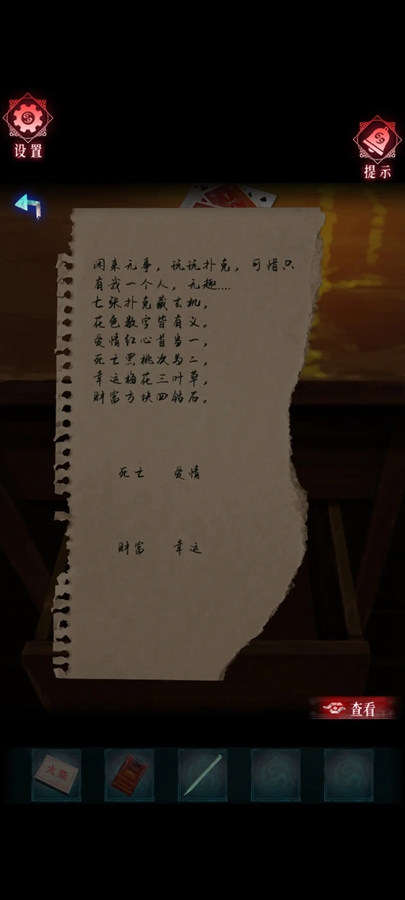 设置
提示
闲来无事，玩玩扑克，可惜只
有我一个人，无趣....
七张扑克藏玄机，
花色数字皆有义，
爱情红心首当一，
死亡黑桃次为二，
幸运梅花三叶草，
财富方块四钻石。
死亡 爱情
财富 幸运
查看
火柴